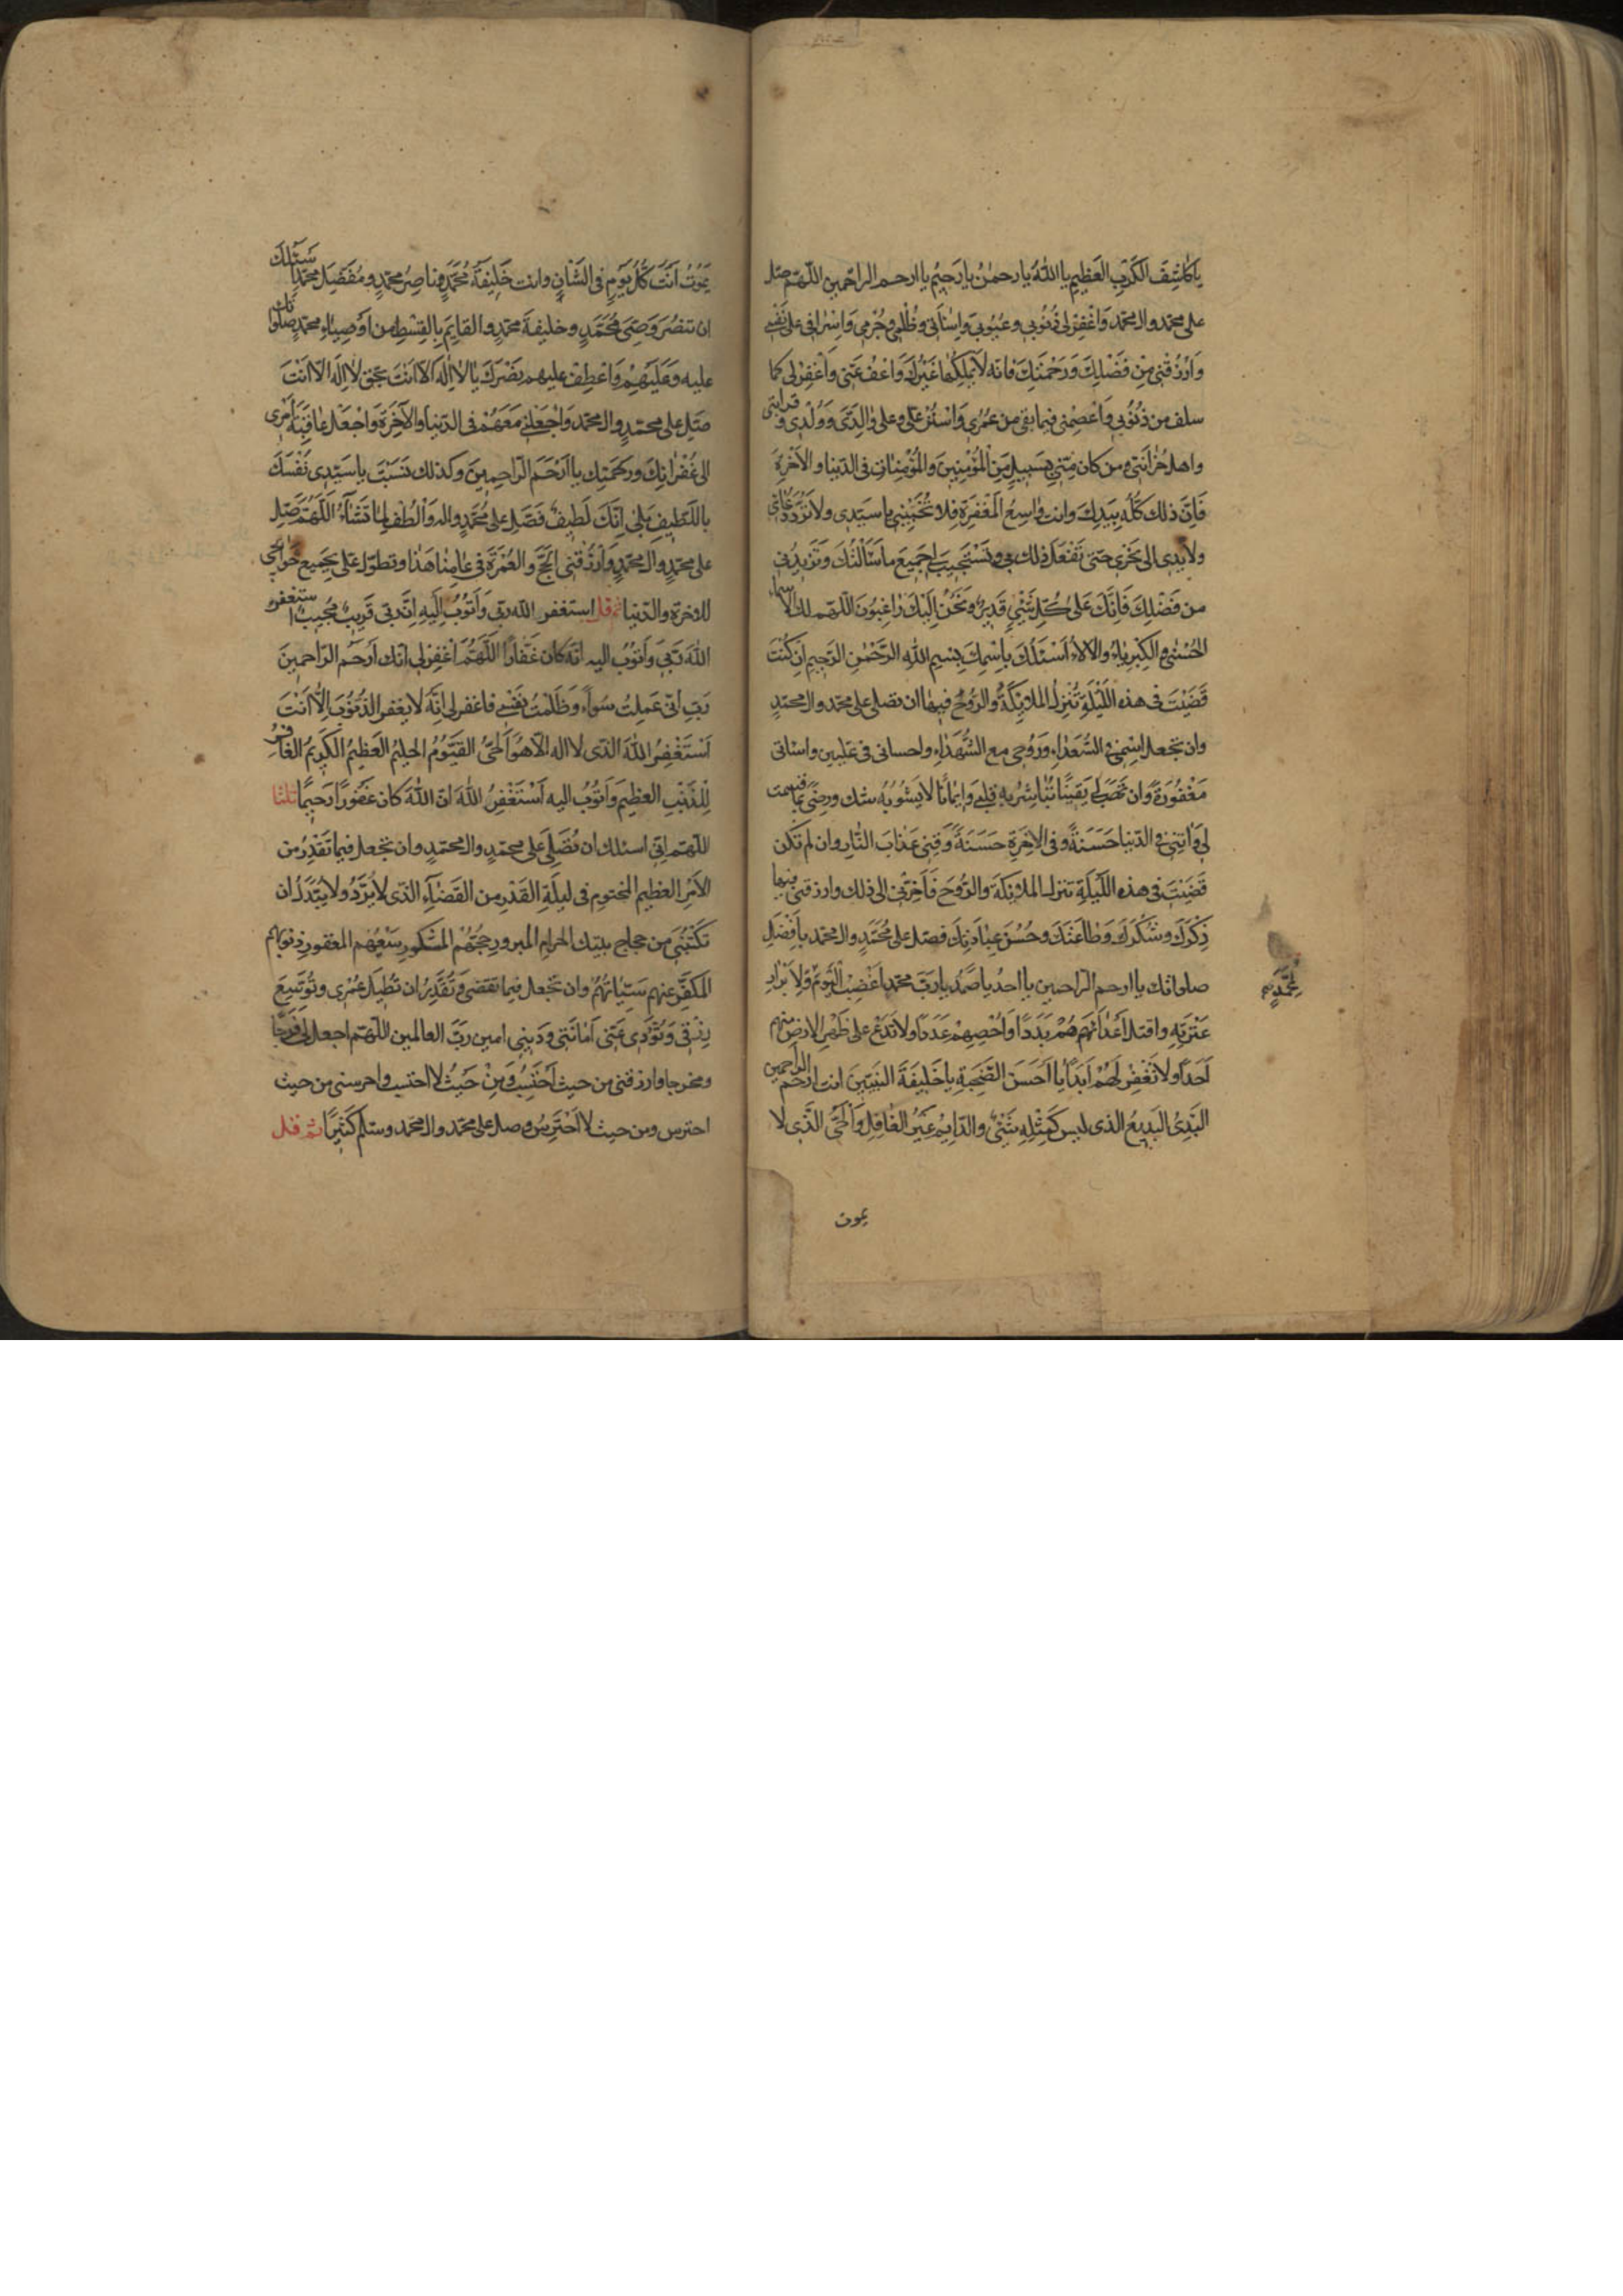 يا كاشِفَ الكَرْبِ العَظيمِ يا اللّٰهُ يا رحمٰنُ يا رَحيمُ يا ارحم الراحمين اللّهمّ صلّ
على محمّد وال محمّد وَاغْفِرْ لي ذُنُوبي وعُيُوبي وَاِسٰائَتي وظُلْمي وجُرْمي وَاِسْرافي على نَفْسي
وَارْزُقْني مِنْ فَضْلِكَ وَرَحْمَتِكَ فَاِنّه لا يَمْلِكُها غَيْرُكَ وَاعْفُ عَنّي وَاغْفِرْ لي كلما
سلف من ذُنُوبي وَاعْصِمْني فيما بقي من عُمُري وَاسْتُرْ عَلَيَّ وعلى وٰالِدَيَّ وَوُلْدي وقرابتي
واهل حُزانَتي ومن كان مِنّي بِسَبيلٍ مِنَ الْمُؤْمِنينَ والْمُؤْمِنٰاتِ في الدّنيا والآخِرَةِ
فَاِنَّ ذلك كُلَّهُ بِيَدِكَ وانت وٰاسِعُ الْمَغْفِرَةِ فلا تُخَيِّبْني يا سَيّدي ولا تَرُدَّ دُعٰائي
ولا يدي الى نَحْري حتى تَفْعَلَ ذلك بي وتَسْتَجيبَ لي جَميعَ ما سَأَلْتُكَ وَتَزيدَني
من فَضْلِكَ فَاِنّكَ عَلى كُلِّ شَيْءٍ قَديرٌ ونَحْنُ اِلَيْكَ رٰاغِبُونَ اللّهمّ لك الاسماء
الحُسْنى والكِبْرِيٰاءُ والآلاءُ اَسْئَلُكَ بِاسْمِكَ بِسْمِ اللهِ الرّحْمٰنِ الرّحيمِ اِنْ كُنْتَ
قَضَيْتَ في هذه اللَّيْلَةِ تَنَزُّلَ الملائِكَةِ والرّوُحِ فيها ان تصلي على محمّد وال محمّدٍ
وان تجعل اسْمي في السُّعَدٰاءِ وَرُوحي مع الشُّهَدٰاءِ واحساني في عليين واسائتي
مَغْفُورَةً وَان تَهَبَ لي يَقينًا تُبٰاشِرُ بِهِ قلبي وَايمانًا لا يَشُوبُهُ شك ورضًى بما قسمت
لي وَاٰتِني في الدّنيا حَسَنَةً وفي الآخِرَةِ حَسَنَةً وَقِني عَذٰابَ النّارِ وان لم تكن
قَضَيْتَ في هذه اللّيلَةِ تنزل الملائكَةِ والرُّوحِ فَاَخِّرْني الى ذلك وارزقني فيها
ذِكْرَكَ وشُكْرَكَ وَطٰاعَتَكَ وحُسْنَ عِبٰادَتِكَ فصلّ على مُحَمّدٍ وال محمّد باَفْضَلِ
صلواتك يا ارحم الراحمين يا احدُ يا صَمَدُ يا رَبَّ محمّد اغْضِبْ الْيَوْمَ لِمُحَمَّدٍ ولِاَبْرٰارِ
عِتْرَتِهِ واقتل اَعْدٰائَهُمْ بَدَدًا وَاَحْصِهِمْ عَدَدًا ولا تَدَعْ على ظَهْرِ الارض منهم
اَحَدًا ولا تَغْفِرْ لَهُمْ اَبَدًا يا اَحْسَنَ الصُّحْبَةِ يا خَليفَةَ النّبيّينَ انت ارحم الراحمين
البَدِئُ البَديعُ الذي ليس كَمِثْلِهِ شَيْئٌ والدّايِمُ غَيْرُ الغٰافِلِ وَالْحَيُّ الّذي لا
يموت
يَمُوتُ اَنْتَ كُلَّ يَوْمٍ في الشّأنِ وانت خَليفَةُ مُحَمّدٍ وناصِرُ محمّدٍ ومُفَضِّلُ محمّدٍ اَسْئَلُكَ
ان تنصُرَ وَصِيَّ مُحَمّدٍ وخليفةَ محمّدٍ والقايِمَ بِالقِسْطِ من اَوْصِيٰاءِ محمّدٍ صلواتك
عليه وعَلَيْهِمْ وَاعْطِفْ عليهم نَصْرَكَ يا لا اِلٰهَ الاّ اَنْتَ بحق لا اِلٰهَ الاّ اَنْتَ
صَلّ على محمّدٍ وال محمّد وَاجْعَلْني مَعَهُمْ في الدّنيا والآخِرَةِ وَاجْعَل عٰاقِبَةَ اَمْري
الى غُفْرٰانِكَ ورَحْمَتِكَ يا اَرْحَمَ الرّاحِمينَ وكذلك نَسَبْتَ يا سَيّدي نَفْسَكَ
باللّطيفِ بَلى اِنّكَ لَطيفٌ فَصَلِّ على مُحَمّدٍ واله وَالْطُفْ لِما تَشٰآءُ اللّهُمّ صَلّ
على محمّدٍ وال محمّدٍ وَارْزُقْني الحَجَّ والعُمْرَةَ في عٰامِنٰا هٰذٰا وتطوّل عَلَيَّ بِجَميعِ حَوٰائجي
للاخرة والدّنيا ثم قل استغفر الله ربّي وَاَتُوبُ اِلَيْهِ اِنَّ ربّي قَريبٌ مُجيبٌ استغفر
اللهَ رَبّي وَاَتوُبُ اليه انّه كان غَفّارًا اللّهُمّ اغْفِرْ لي انّك اَرْحَمُ الرّاحمينَ
رَبِّ انّي عَمِلْتُ سُوءًا وَظَلَمْتُ نَفْسي فاغفر لي اِنّهُ لا يغفر الذُّنُوبَ اِلّا اَنْتَ
اَسْتَغْفِرُ اللهَ الذّي لا اله الّا هُوَ الْحَيُّ القَيّوُمُ الحليمُ العَظيمُ الكَريمُ الغافِرُ
لِلْذَّنْبِ العظيمِ وَاَتُوبُ اليه اَسْتَغْفِرُ اللهَ انّ اللهَ كان غَفُورًا رَحيمًا ثلثا
اللهمّ انّي اسئلك ان تُصَلِّيَ على محمّدٍ وال محمّدٍ وان تجعل فيما تَقْدِرُ من
الاَمْرِ العظيمِ المحتومِ في ليلَةِ القَدْرِ من القَضٰآءِ الذّي لا يُرَدُّ ولا يُبَدَّلُ ان
تَكْتُبَني من حجاج بيتك الحرامِ المبرور حَجُّهُم المشكورِ سَعْيُهُم المغفورِ ذنوبهم
المُكَفَّرِ عنهم سَيّئاتُهُمْ وان تجعل فيما تقضي وَتُقَدِّرُ ان تُطيلَ عُمْري وتُوَسِّعَ
رِزْقي وَتُؤَدّيَ عَنّي اَمٰانَتي ودَيْني امين ربَّ العالمين اللّهمّ اجعل لي فَرَجًا
ومخرجا وارزقني من حيث اَحْتَسِبُ وَمِنْ حَيْثُ لا احتسب واحرسني من حيث
احترس ومن حيث لا اَحْتَرِسُ وصل على محمّد وال محمّد وسلّم كَثيرًا ثمّ قل